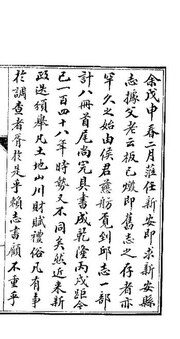 余戊申春二月莅任新安即求新安縣
志據父老云板已燬即舊志之存者亦
罕久之始由侯君舫覓到邱志一部
計八冊首尾尚完具書成乾隆丙戌距今
已一百四十八年時勢又不同矣然近來新
政迭頒舉凡土地山川財賦禮俗凡有事
於調查者胥於是乎賴志書顧不重乎